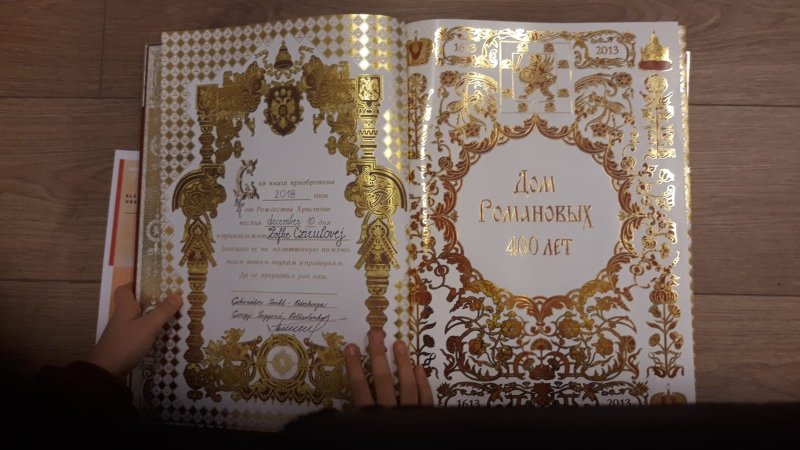 Сия книга приобретена
2018 года
от Рождества Христова
месяца december 10 дня
и принадлежит Zofke
Завещаю ее на молитвенную память
моим детям, внукам и правнукам.
Да не прервется род наш.
Gubernátor Sankt - Peterburgu
1613 2013
Дом
Романовых
400 лет
1613 2013